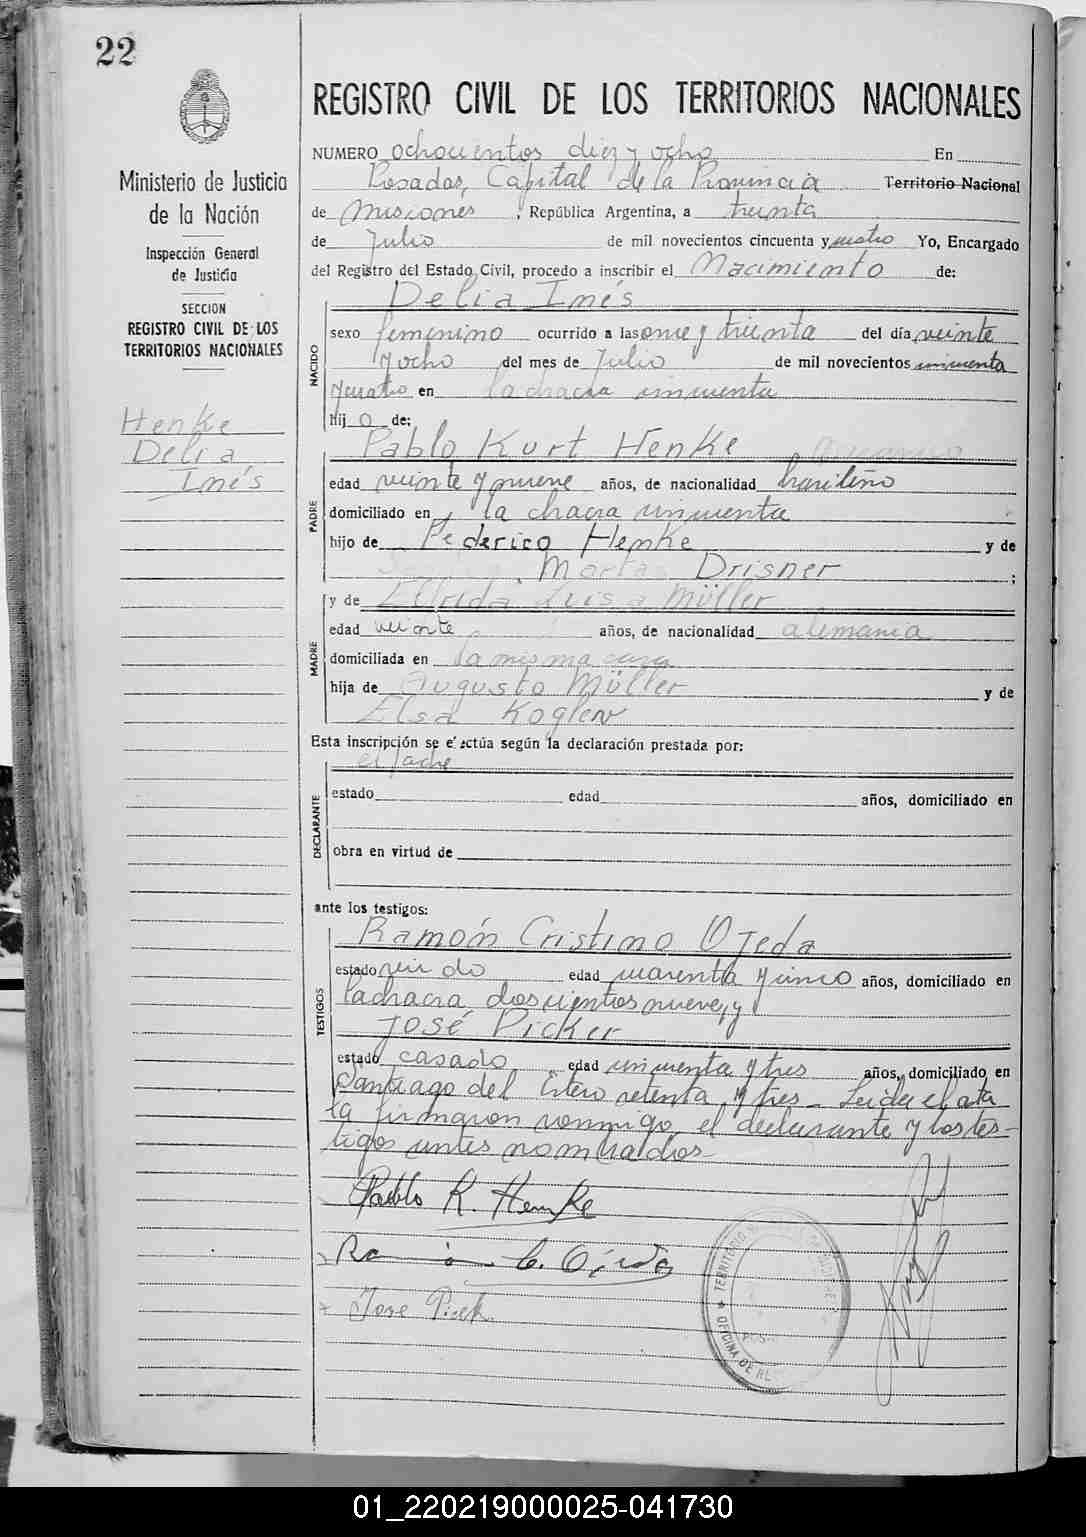 22
Ministerio de Justicia
de la Nación
Inspección General
de Justicia
SECCION
REGISTRO CIVIL DE LOS
TERRITORIOS NACIONALES
Henke
Delia
Inés
REGISTRO CIVIL DE LOS TERRITORIOS NACIONALES
NUMERO ochocientos diez y ocho En
Posadas, Capital de la Provincia Territorio Nacional
de Misiones, República Argentina, a treinta
de Julio de mil novecientos cincuenta y cuatro Yo, Encargado
del Registro del Estado Civil, procedo a inscribir el Nacimiento de:
Delia Inés
NACIDO
sexo femenino ocurrido a las once y treinta del día veinte
y ocho del mes de Julio de mil novecientos cincuenta
y cuatro en la chacra cincuenta
hij o de:
Pablo Kurt Henke
PADRE
edad veinte y nueve años, de nacionalidad brasileño
domiciliado en la chacra cincuenta
hijo de Federico Henke y de
Marta Drisner ;
y de Elfrida Luisa Müller
MADRE
edad veinte años, de nacionalidad alemania
domiciliada en la misma casa
hija de Augusto Müller y de
Elsa Koglen
Esta inscripción se efectúa según la declaración prestada por:
el padre
DECLARANTE
estado edad años, domiciliado en
obra en virtud de
ante los testigos:
Ramón Cristino Ojeda
TESTIGOS
estado viudo edad cuarenta y cinco años, domiciliado en
la chacra doscientos nueve, y
José Picker
estado casado edad cincuenta y tres años, domiciliado en
Santiago del Estero setenta y tres - Leida el acta
la firmaron conmigo, el declarante y los tes-
tigos antes nombrados-
Pablo K. Henke
C. Ojeda
Jose Pick
TERRITORIO
OFICINA DE
01_220219000025-041730